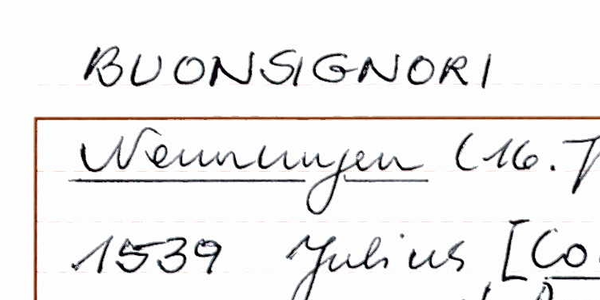 BUONSIGNORI
Nennungen (16. J
1539 Julius [Co